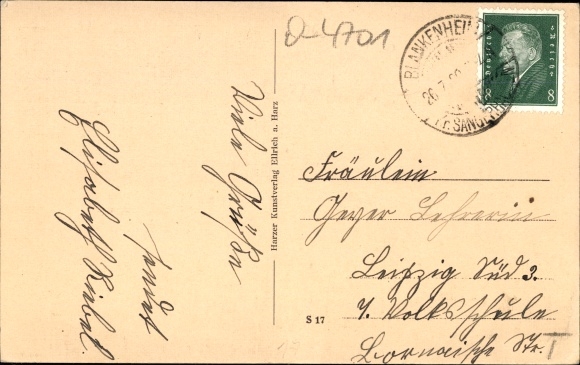 D-4701
BLANKENHEIM
26.7.
SANGERH
Deutsches Reich
8 8
Viele Grüße
sendet
Elisabeth Riebel.
Harzer Kunstverlag Ellrich a. Harz
S 17
Fräulein
Geyer Lehrerin
Leipzig Süd 3.
Volksschule
Bornaische Str.